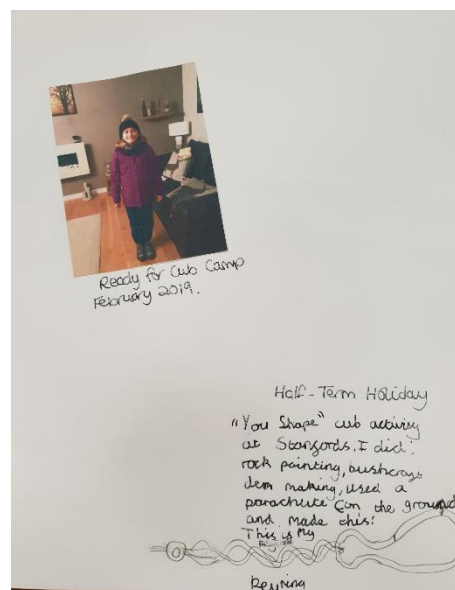 Ready for Cub Camp
February 2019.
Half-Term Holiday
"You Shape" cub activity
at I did:
rock painting, bushcrafs
den making, used a
parachute (on the ground
and made this!
This is My